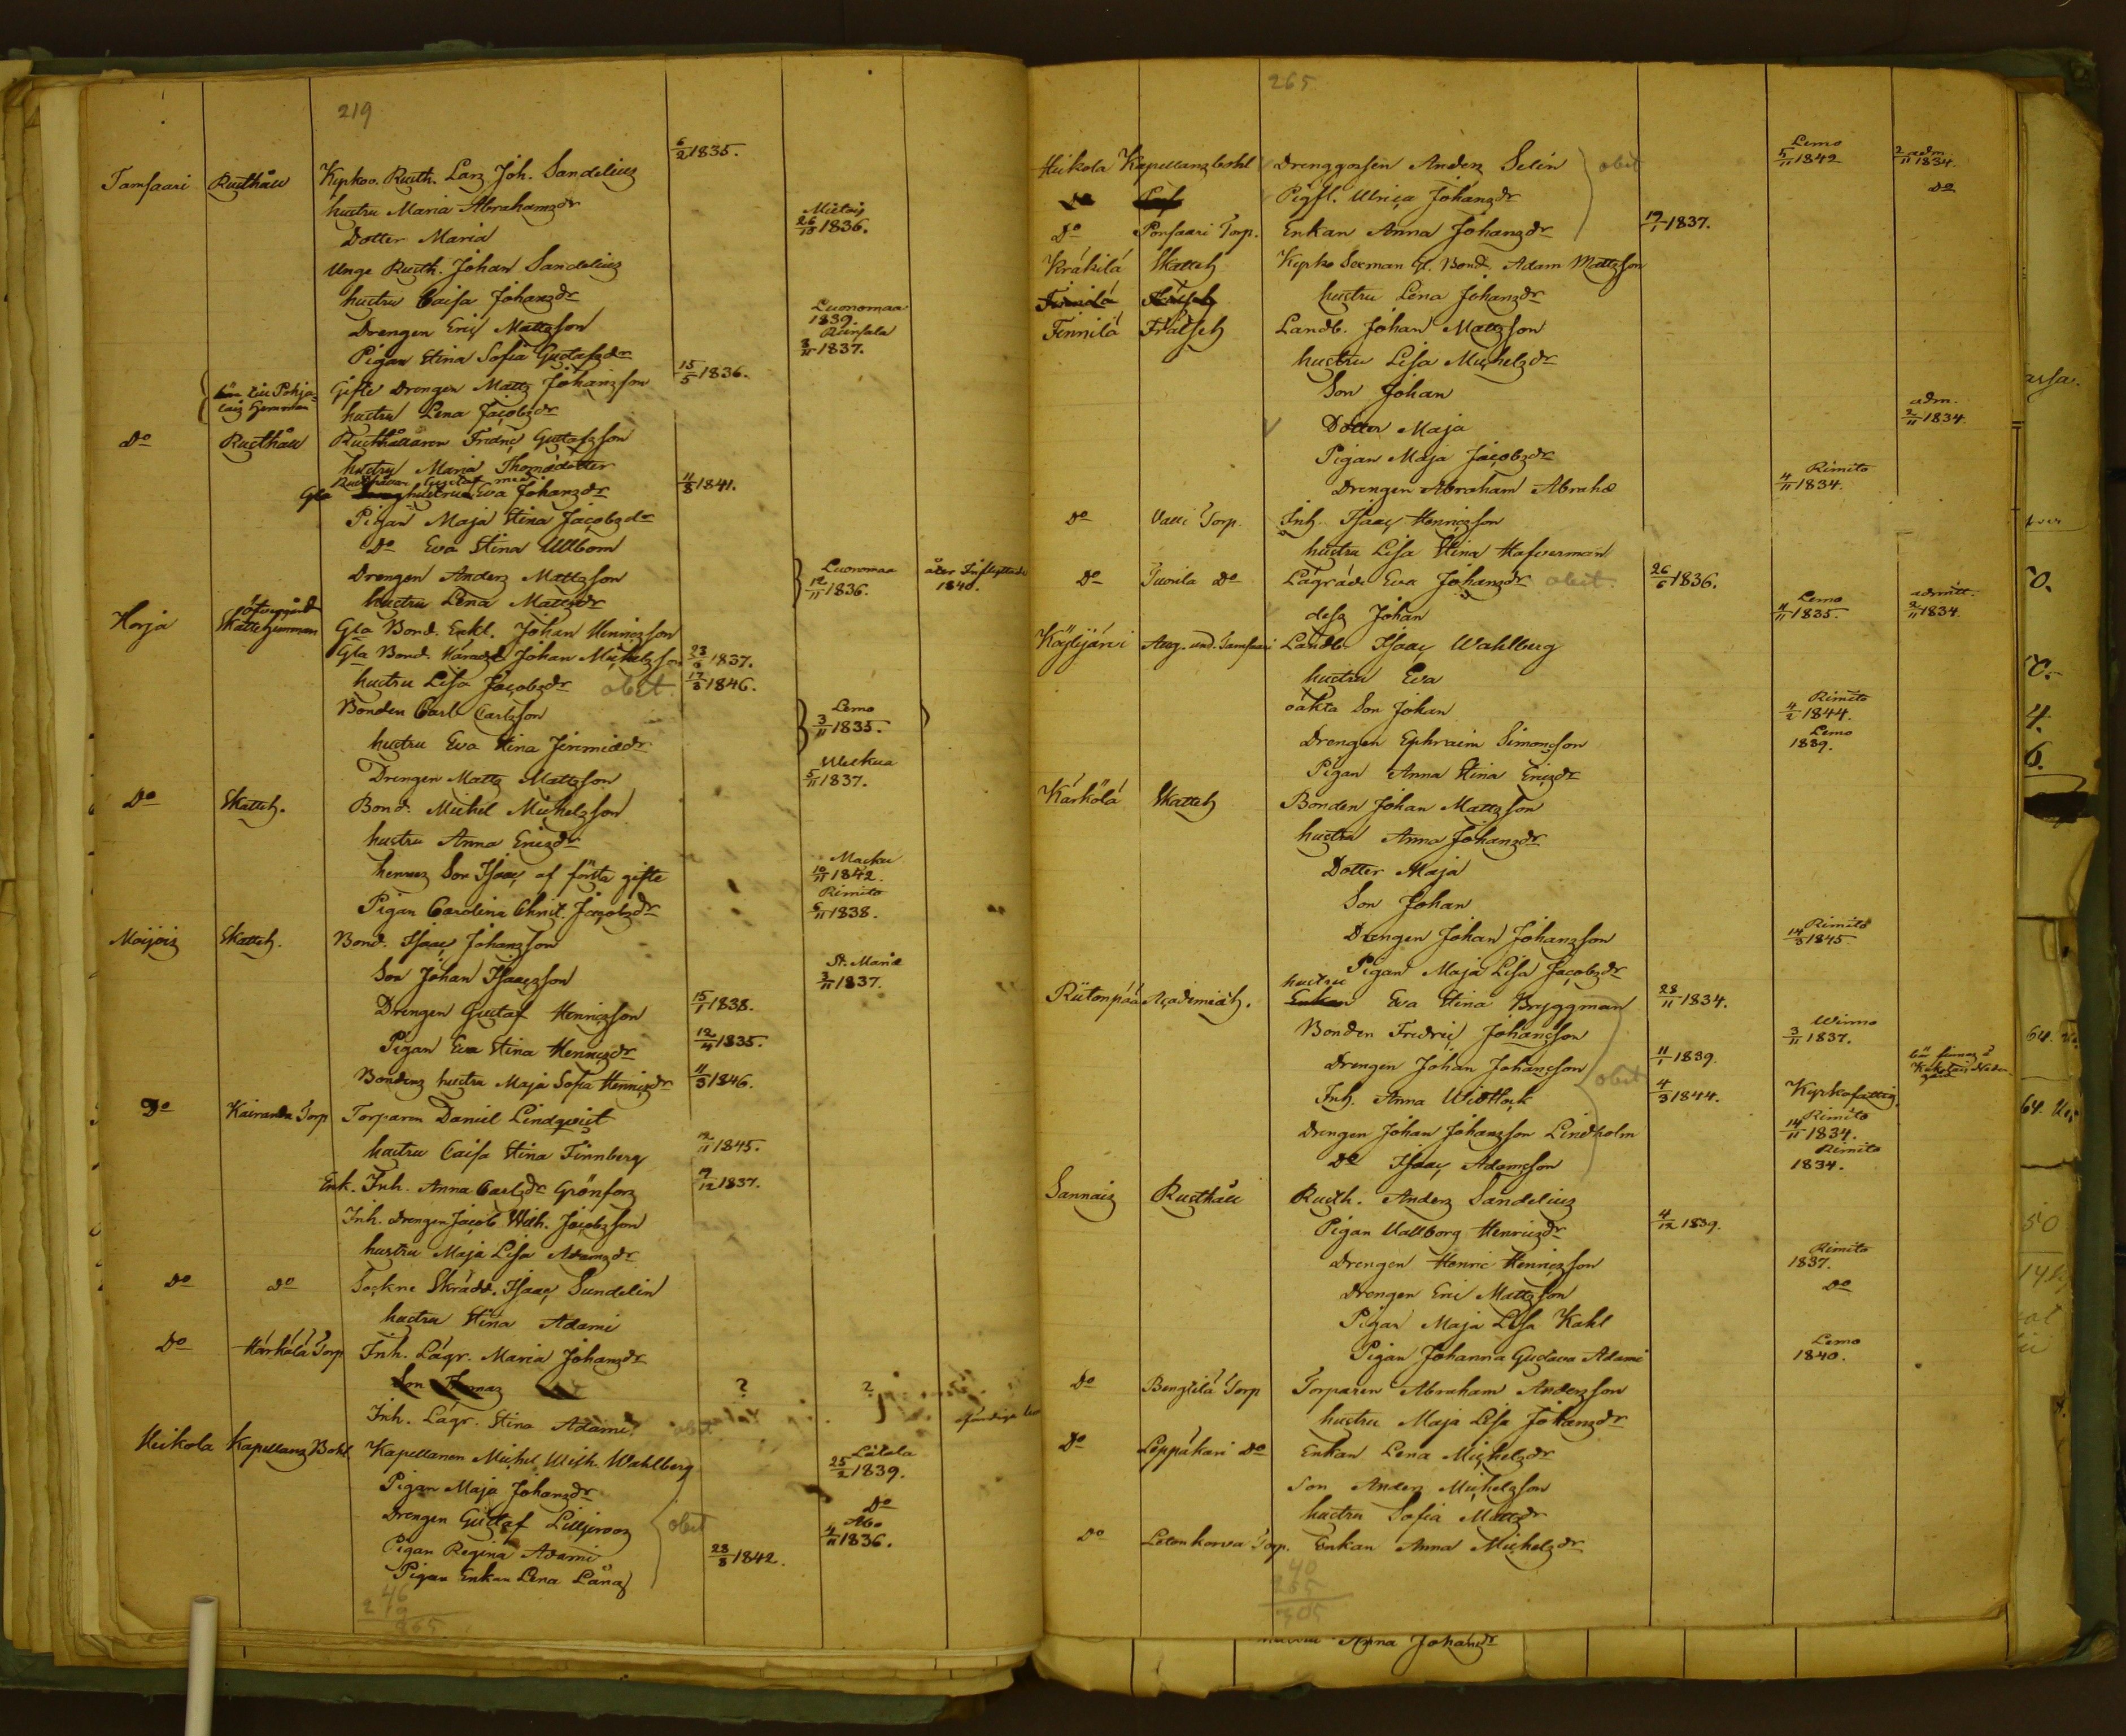 219
Tamsaari Rusthåll Kyrkov. Rusth. Lars Joh. Sandelius 6/2 1835.
hustru Maria Abrahamsdr
Dotter Maria Mietois 26/10 1836.
Unge Rusth. Johan Sandelius
hustru Caisa Johansdr
Drengen Eric Mattsson Luonomaa 1839.
Pigan Stina Sofia Gustafsdr Reinsala 3/11 1837.
Gifte Drengen Matts Johansson 15/5 1836.
hustru Lena Jacobsdr
Do Rusthåll Rusthållaren Fredric Gustafsson
hustru Maria Thomædotter
Rusthållaren Gustaf
Gla hustru Eva Johansdr 4/8 1841.
Pigan Maja Stina Jacobsdr
Do Eva Stina Ullbom
Drengen Anders Mattsson Luonomaa 12/11 1836. åter Inflyttade 1840.
hustru Lena Mattsdr
Korja Skattehemman Gla Bond. Enkl. Johan Henricsson
Gla Bond. Johan Michelsson 23/9 1837.
hustru Lisa Jacobsdr obiit. 17/8 1846.
Bonden Carl Carlsson Lemo 3/11 1835.
hustru Eva Stina Jeremiædr
Drengen Matts Mattsson 5/11 1837.
Do Skatteh. Bond. Michel Michelsson
hustru Anna Ericsdr
hennes Son Isaac af första gifte Masku 10/11 1842.
Pigan Carolina Christ. Jacobsdr Rimito 6/11 1838.
Moijois Skatteh. Bond. Isaac Johansson
Son Johan Isaacsson St. Mariæ 3/11 1837.
Drengen Gustaf Henricsson 15/1 1838.
Pigan Eva Stina Henricsdr 12/4 1835.
Bondens hustru Maja Sofia Henricsdr 11/3 1846.
Do Kairanda Torp Torparen Daniel Lindqvist
hustru Caisa Stina Finnberg 2/11 1845.
Enk. Inh. Anna Carlsdr Grönfors 9/12 1837.
Inh. Drengen Jacob Wilh. Jacobsson
hustru Maja Lisa Adamsdr
Do do Sockne Skrädd. Isaac Sundelin
hustru Stina Adami
Do Härkälä Torp Inh. Lägr. Maria Johansdr
Son Thomas ? ?
Inh. Lägr. Stina Adami
Heikola Kapellans Bohl. Kapellanen Michel Wilh. Wahlberg Låtala 25/2 1839.
Pigan Maja Johansdr Do
Drengen Gustaf Liljeroos obiit Åbo 4/11 1836.
Pigan Regina Adami
Pigan Enkan Lena Lång 28/8 1842.
46
219
265
265
Heikola Kapellansbohl Drenggossen Anders Selin obiit Lemo 5/11 1842 adm. 2/11 1834.
Do Pigfl. Ulrica Johansdr Do
Do Ponsaari Torp. Enkan Anna Johansdr 19/1 1837.
Kräkilä Skatteh Kyrko Sexman Gl. Bond. Adam Mattsson
hustru Lena Johansdr
Tennilä Frälseh Landb. Johan Mattsson
hustru Lisa Michelsdr
Son Johan
Dotter Maja adm. 2/11 1834.
Pigan Maja Jacobsdr
Drengen Abraham Abrahæ Rimito 4/11 1834.
Do Valli Torp. Inh. Isaac Henricsson
hustru Lisa Stina Hafverman
Do Tuorila Do Lägräde Eva Johansdr obiit. 26/6 1836.
dess Johan Lemo 4/11 1835. admitt. 2/11 1834.
Köylijärvi Aug. und. Tamsaari Landb. Isaac Wahlberg
hustru Eva
oäkta Son Johan Rimito 4/2 1844.
Drengen Ephraim Simonsson Lemo 1839.
Pigan Anna Stina Ericsdr
Kärkölä Skatteh Bonden Johan Mattsson
hustru Anna Johansdr
Dotter Maja
Son Johan
Drengen Johan Johansson Rimito 14/3 1845
Pigan Maja Lisa Jacobsdr
Riitonpää Academiæh. hustru Enkan Eva Stina Bryggman 28/11 1834.
Bonden Fredric Johansson Wirmo 3/11 1837.
Drengen Johan Johansson obiit 11/1 1839.
Inh. Anna Widtlock 4/3 1844. Kyrkofattig.
Drengen Johan Johansson Lindholm Rimito 14/11 1834.
Do Isaac Adamsson Rimito 1834.
Sannais Rusthåll Rusth. Anders Sandelius
Pigan Vallborg Henricsdr 4/12 1839.
Drengen Henric Henricsson Rimito 1837.
Drengen Eric Mattsson Do
Pigan Maja Lisa Kahl
Pigan Johanna Gustava Adami Lemo 1840.
Do Bengtilä Torp Torparen Abraham Andersson
hustru Maja Lisa Johansdr
Do Leppäkari Do Enkan Lena Michelsdr
Son Anders Michelsson
hustru Sofia Mattsdr
Do Letonkorva Torp. Enkan Anna Michelsdr
40
265
305
Anna Johansdr